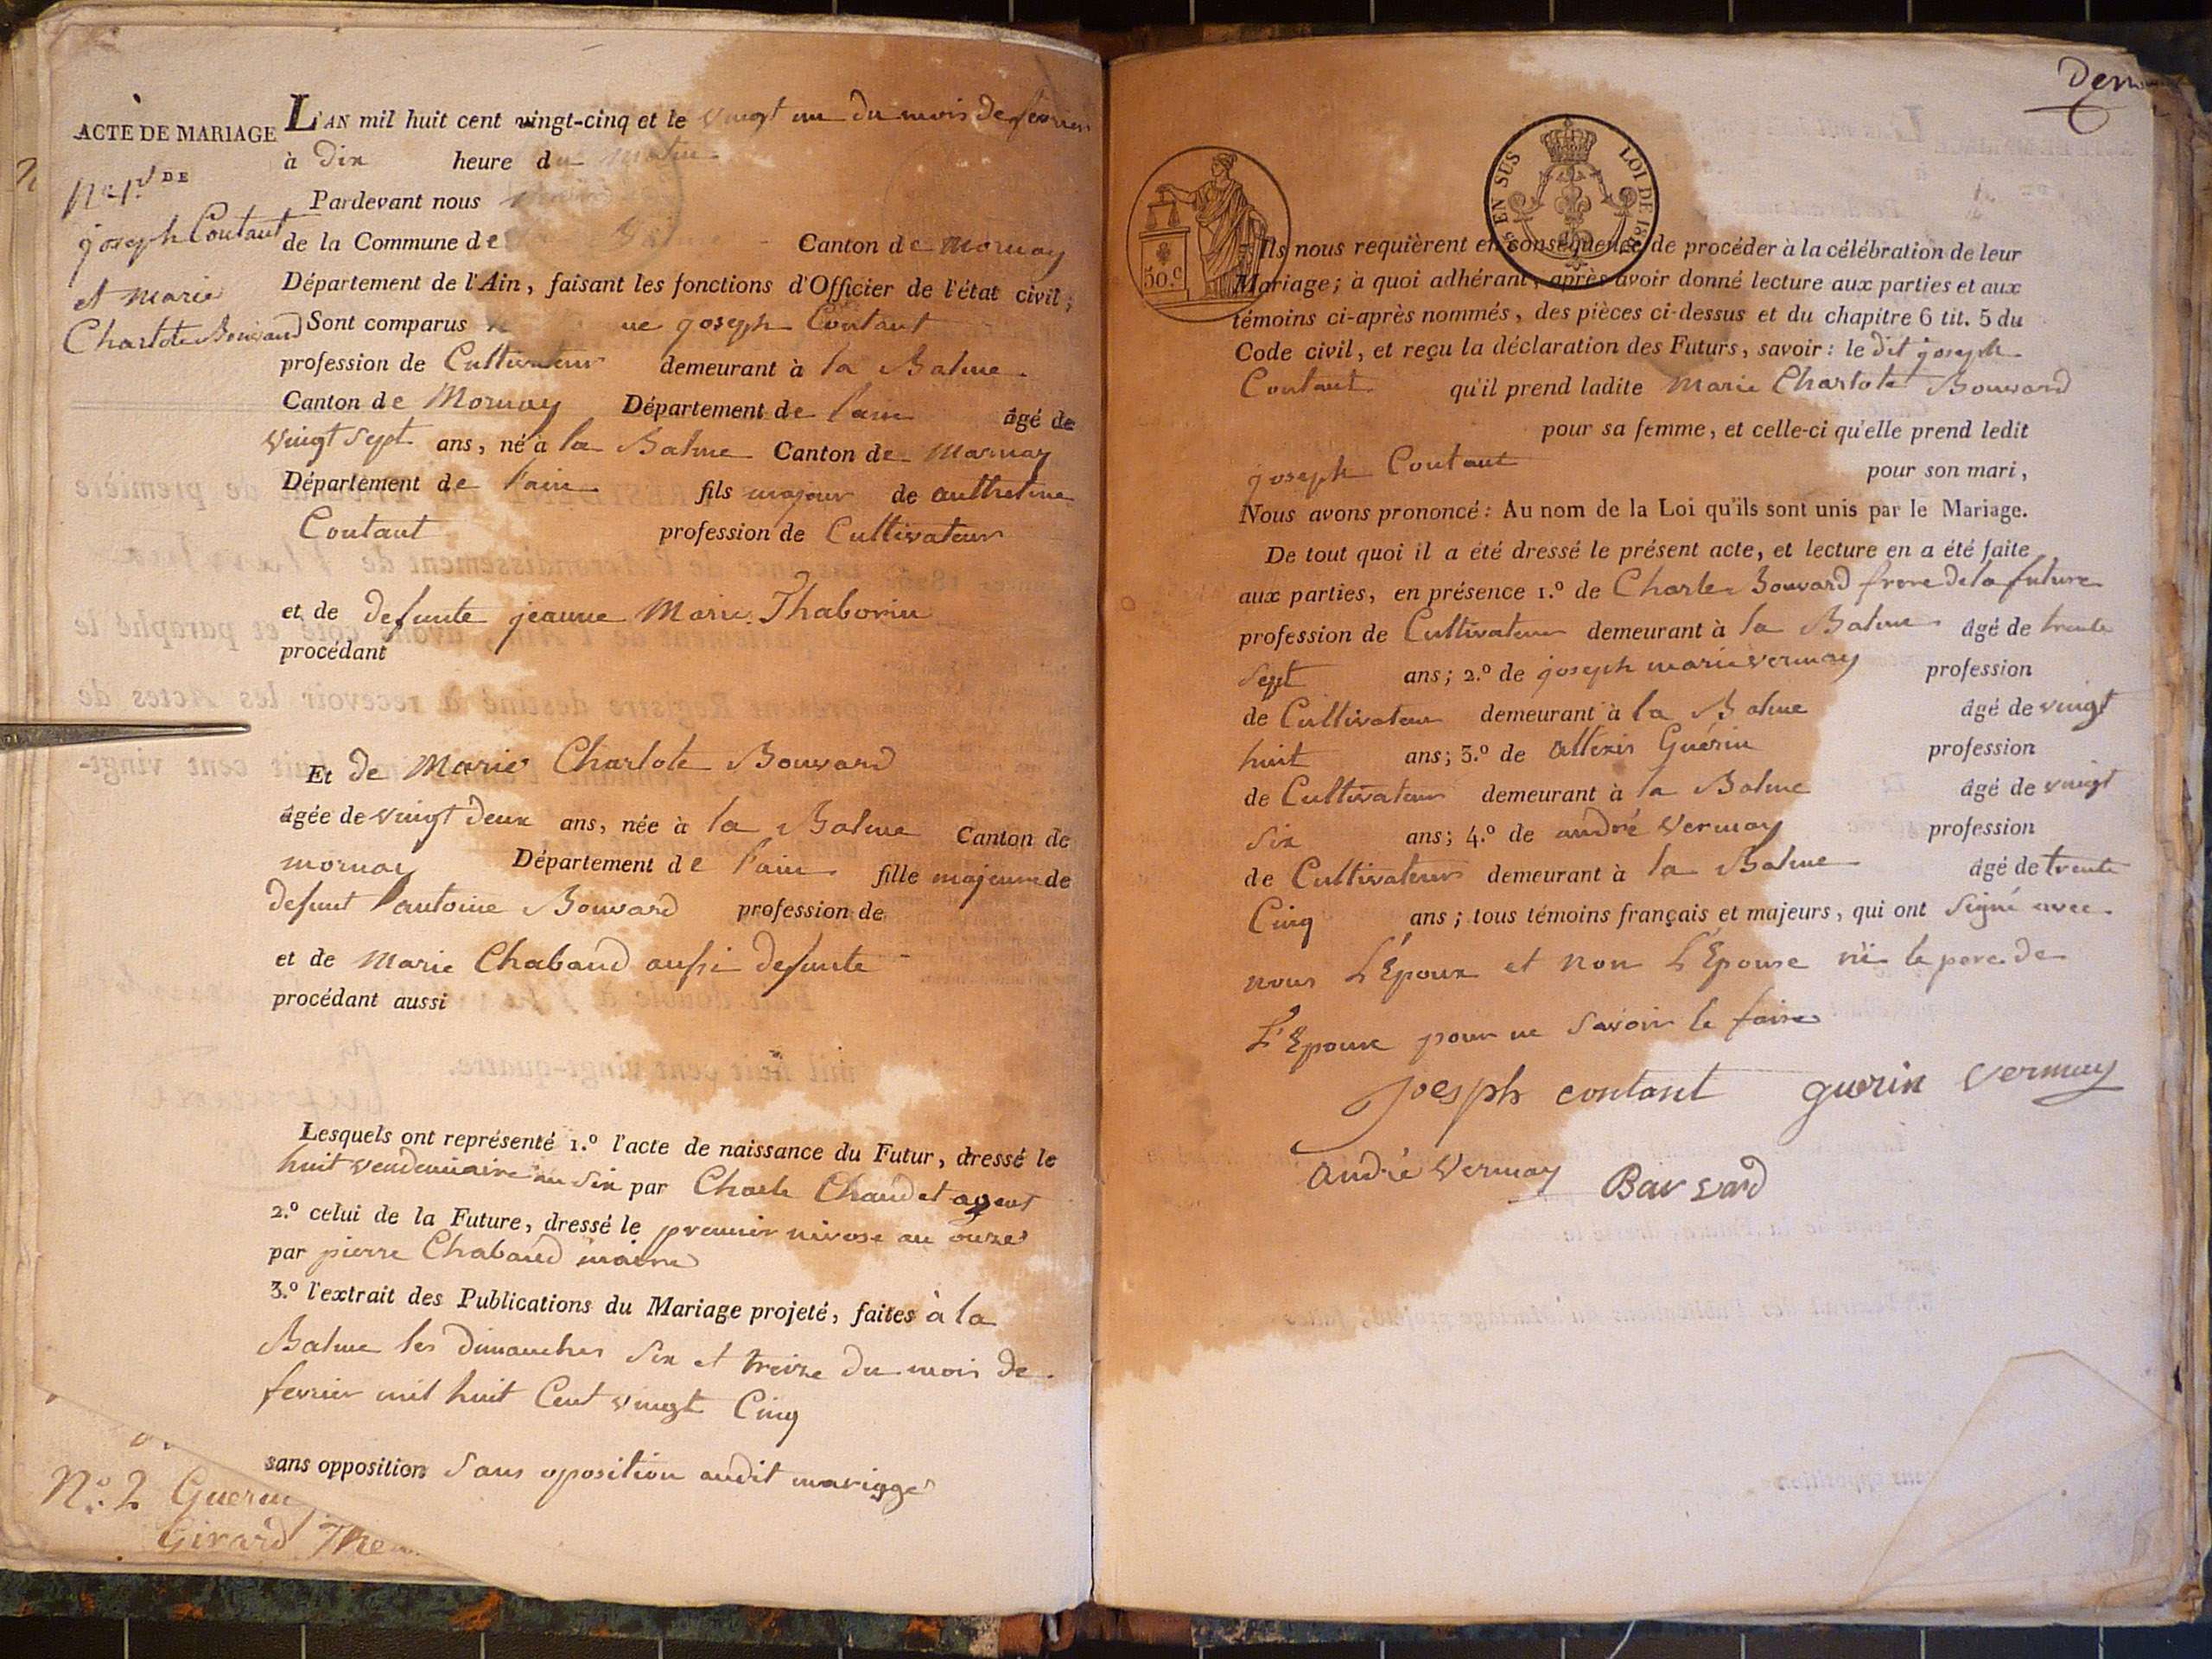 ACTE DE MARIAGE
N.o 1.er DE
joseph Coutant
et marie
Charlote Bouvard
L'AN mil huit cent vingt-cinq et le vingt un du mois de fevrier
à dix heure du matin
Pardevant nous
de la Commune de Balme Canton de Mornay
Département de l'Ain, faisant les fonctions d'Officier de l'état civil;
Sont comparus joseph Coutant
profession de Cultivateur demeurant à la Balme
Canton de Mornay Département de l'ain âgé de
vingt sept ans, né à la Balme Canton de Mornay
Département de l'ain fils majeur de anthelme
Coutant profession de Cultivateur
et de defunte jeanne Marie Thaborin
procédant
Et de Marie Charlote Bouvard
âgée de vingt deux ans, née à la Balme Canton de
mornay Département de l'ain fille majeure de
defunt antoine Bouvard profession de
et de Marie Chabaud aussi defunte
procédant aussi
Lesquels ont représenté 1.º l'acte de naissance du Futur, dressé le
huit vendemiaire an six par Charle Chaudet agent
2.º celui de la Future, dressé le premier nivose an onze
par pierre Chabaud maire
3.º l'extrait des Publications du Mariage projeté, faites à la
Balme les dimanches six et treize du mois de
fevrier mil huit Cent vingt Cinq
sans opposition sans oposition audit mariage
N.o 2 Guerin
Girard
50.c
EN SUS LOI DE
Ils nous requièrent en conséquence de procéder à la célébration de leur
Mariage; à quoi adhérant, après avoir donné lecture aux parties et aux
témoins ci-après nommés, des pièces ci-dessus et du chapitre 6 tit. 5 du
Code civil, et reçu la déclaration des Futurs, savoir: le dit joseph
Coutant qu'il prend ladite Marie Charlote Bouvard
pour sa femme, et celle-ci qu'elle prend ledit
joseph Coutant pour son mari,
Nous avons prononcé: Au nom de la Loi qu'ils sont unis par le Mariage.
De tout quoi il a été dressé le présent acte, et lecture en a été faite
aux parties, en présence 1.º de Charle Bouvard frere de la future
profession de Cultivateur demeurant à la Balme âgé de trente
sept ans; 2.º de joseph marie vernay profession
de Cultivateur demeurant à la Balme âgé de vingt
huit ans; 3.º de allexis Guérin profession
de Cultivateur demeurant à la Balme âgé de vingt
six ans; 4.º de andré Vernay profession
de Cultivateur demeurant à la Balme âgé de trente
Cinq ans; tous témoins français et majeurs, qui ont signé avec
nous L'Epoux et non L'Epouse ni le pere de
L'Epoux pour ne savoir le faire
joesph contant guerin vernay
andré Vernay Bouvard